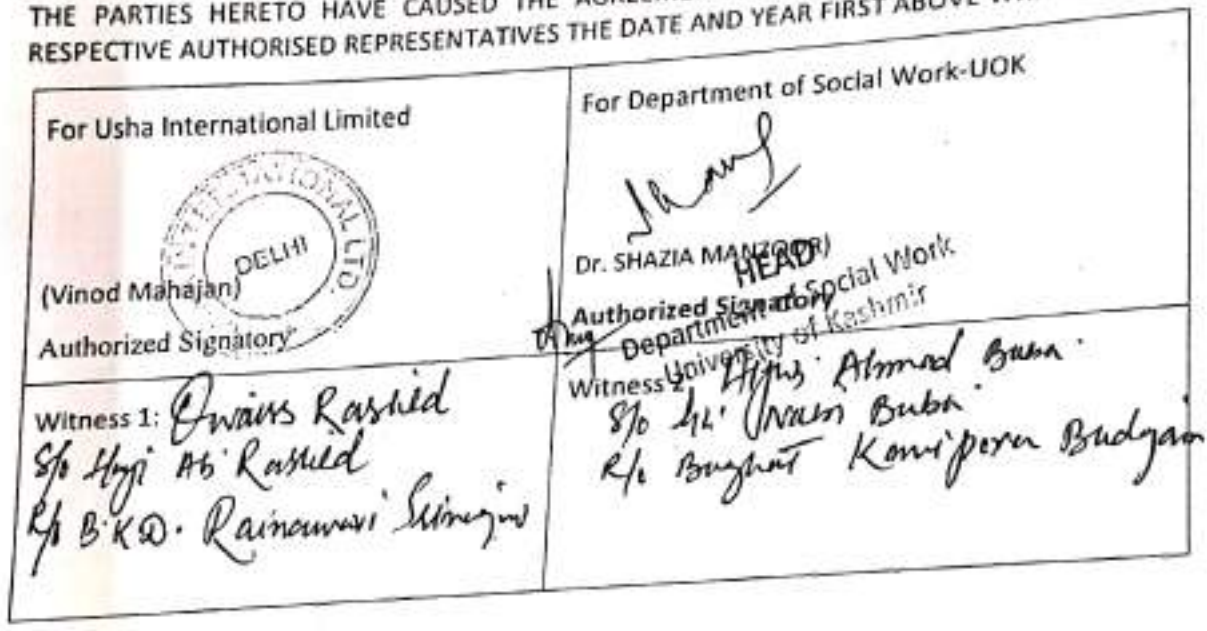 THE PARTIES HERETO HAVE CAUSED THE
RESPECTIVE AUTHORISED REPRESENTATIVES THE DATE AND YEAR FIRST ABOVE
For Usha International Limited
INTERNATIONAL LTD.
DELHI
(Vinod Mahajan)
Authorized Signatory
For Department of Social Work-UOK
Dr. SHAZIA MANZOOR)
HEAD
Authorized Signatory
Department of Social Work
University of Kashmir
Witness 1: Owaiss Rashid
S/o Haji Ab Rashid
R/o B.K.D. Rainawari Srinagar
Witness 2: Ahmad Baba
S/o Baba
R/o Baghat Kanipora Budgam